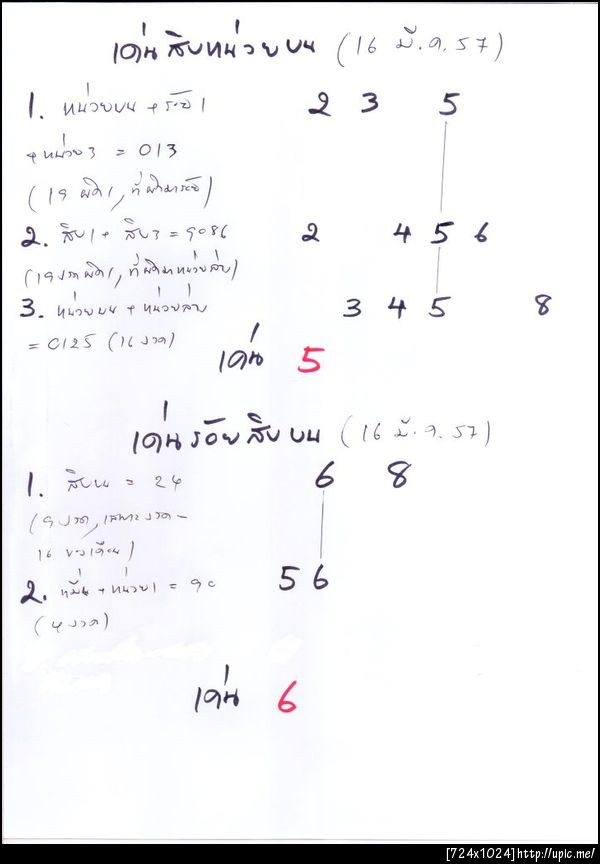 เด่นสิบหน่วยบน (16 มี.ค.57)
1. หน่วยบน + ร้อย1 2 3 5
+ หน่วย3 = 013
(19 ผิด1, ที่ผิดมาร้อย)
2. สิบ1 + สิบ3 = 9086 2 4 5 6
(19งวดผิด1, ที่ผิดมาหน่วยล่าง)
3. หน่วยบน + หน่วยล่าง 3 4 5 8
= 0125 (16 งวด)
เด่น 5
เด่นร้อยสิบบน (16 มี.ค.57)
1. สิบบน = 24 6 8
(9 งวด, เฉพาะงวด-
16 ของเดือน)
2. หมื่น + หน่วย1 = 90 5 6
(4 งวด)
เด่น 6
[724x1024]http://upic.me/